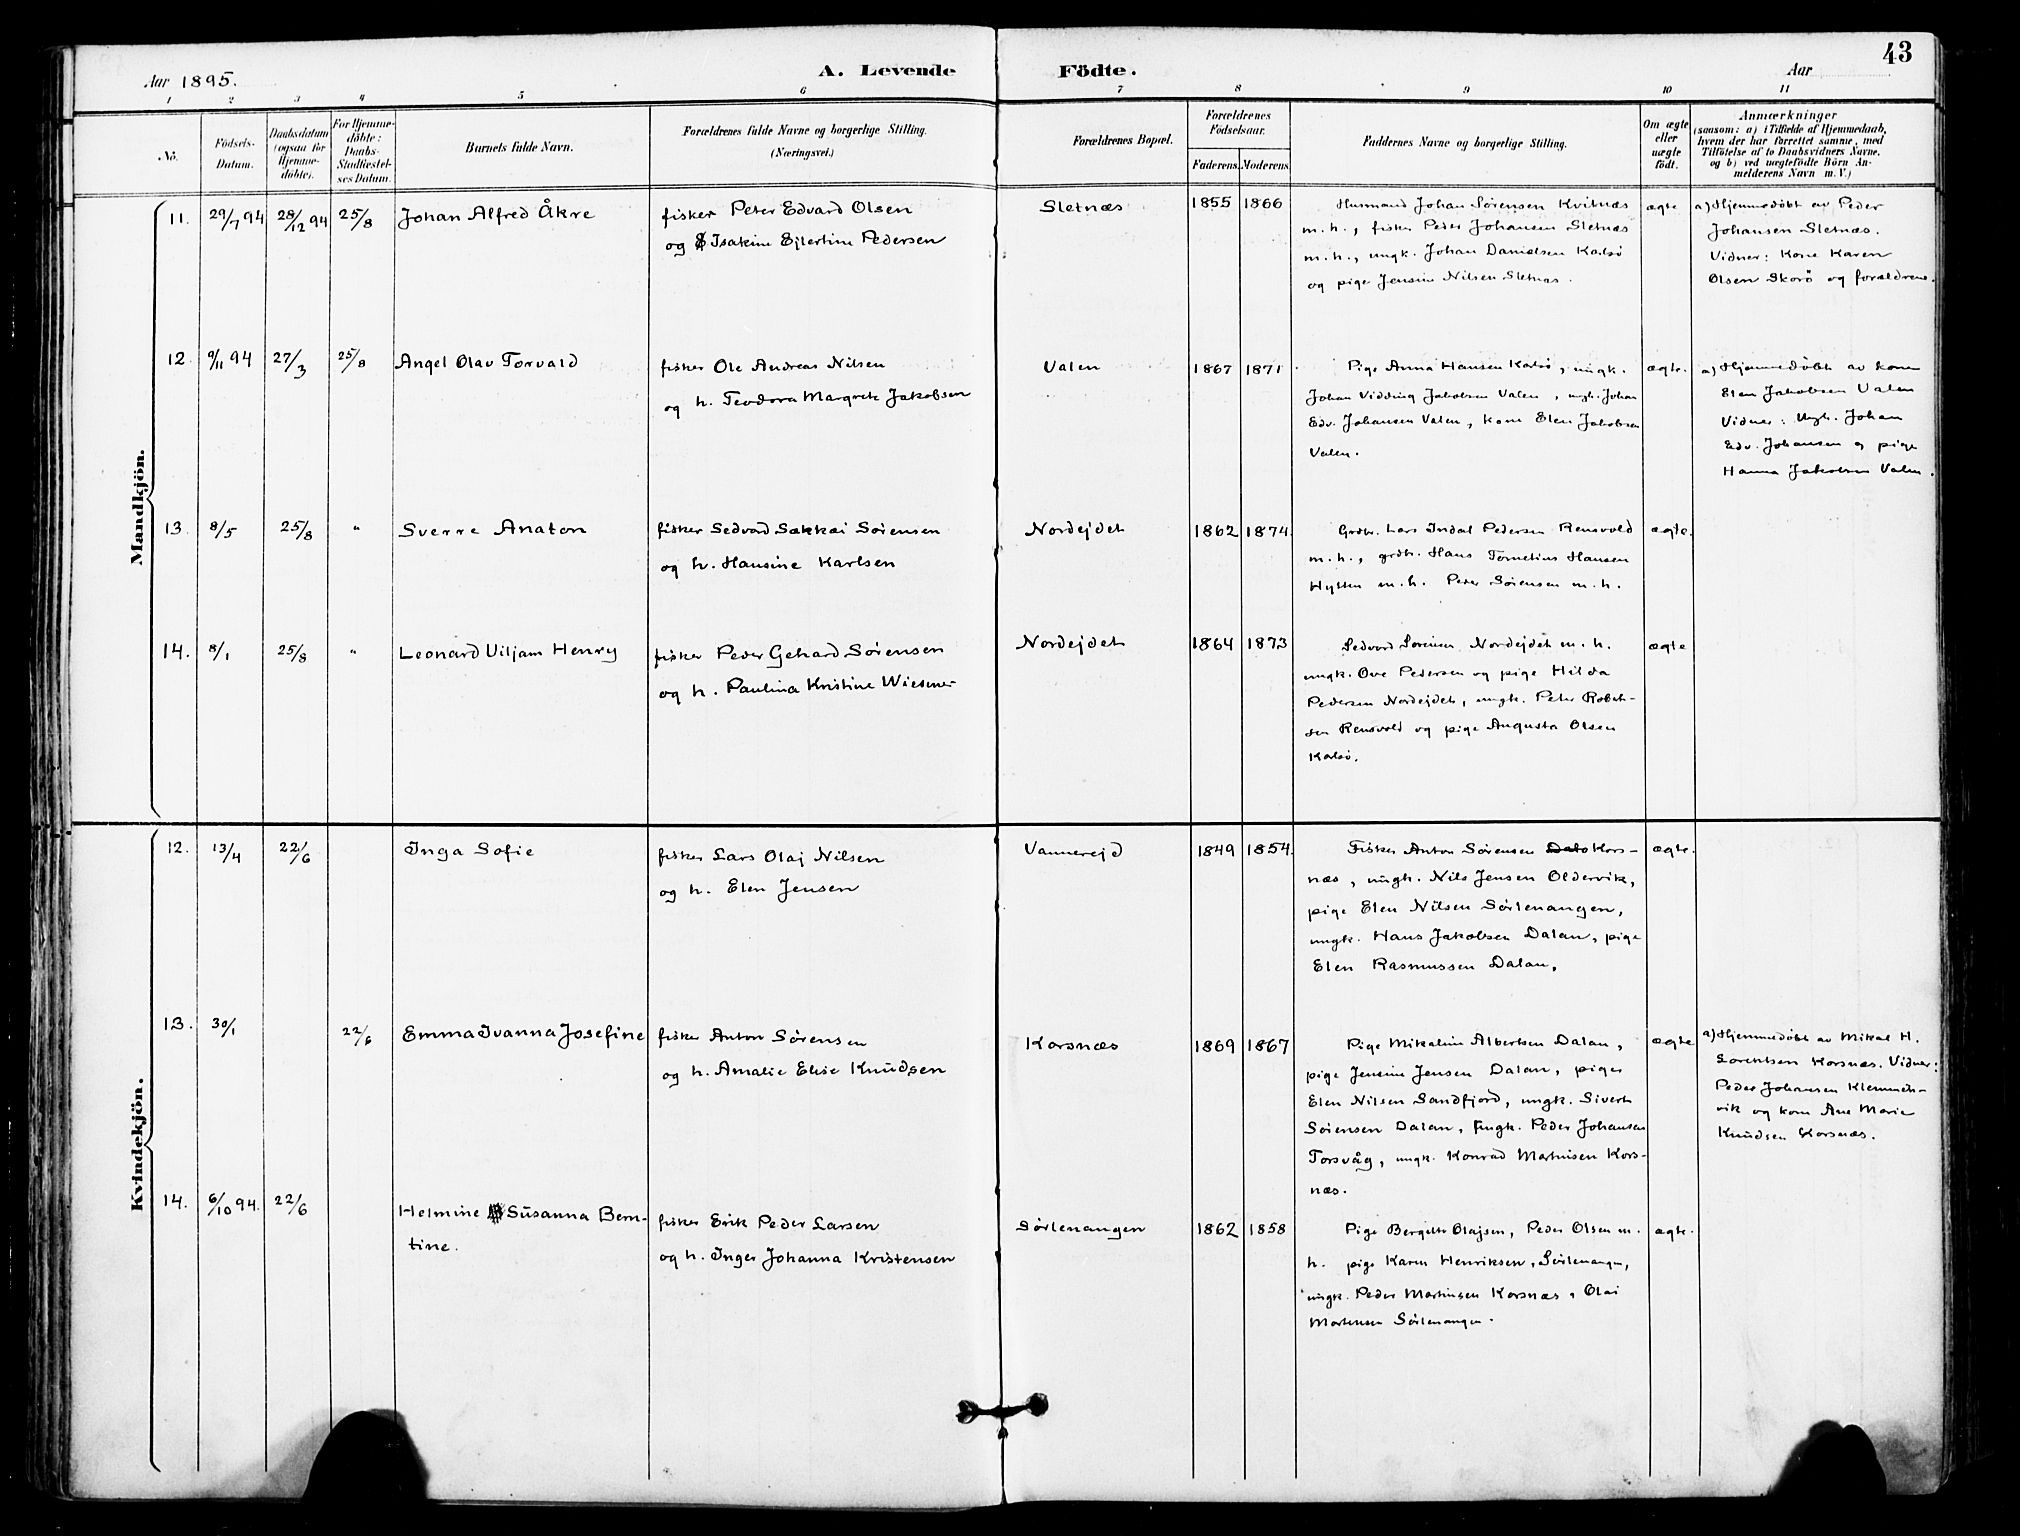 43
Aar 1895.
A. Levende Födte.
Aar
1 2 3 4 5 6 7 8 9 10 11
No.
Födsels-
Datum.
Daabsdatum
(ogsaa for
Hjemme-
döbte).
For Hjemme-
döbte:
Daabs-
Stadfæstel-
ses Datum.
Barnets fulde Navn.
Forældrenes fulde Navne og borgerlige Stilling.
(Næringsvei.)
Forældrenes Bopæl.
Forældrenes
Födselsaar.
Faderens. Moderens.
Faddernes Navne og borgerlige Stilling.
Om ægte
eller
uægte
födt.
Anmærkninger
(saasom: a) i Tilfælde af Hjemmedaab,
hvem der har forrettet samme, med
Tilföielse af to Daabsvidners Navne,
og b) ved uægtefödte Börn An-
melderens Navn m. V.)
Mandkjön.
11. 29/7 94 28/12 94 25/8 Johan Alfred Åkre
fisker Peter Edvard Olsen
og Isakine Ejlertine Pedersen
Sletnæs 1855 1866
Husmand Johan Sørensen Kvitnæs
m. h., fisker Peder Johansen Sletnæs
m. h., ungk. Johan Danielsen Karlsø
og pige Jensine Nilsen Sletnæs.
ægte
a) Hjemmedøbt av Peder
Johansen Sletnæs.
Vidner: Kone Karen
Olsen Skorö og forældrene.
12. 9/11 94 27/3 25/8 Angel Olav Torvald
fisker Ole Andreas Nilsen
og h. Teodora Margrete Jakobsen
Valen 1867 1871
Pige Anna Hansen Karlsø, ungk.
Johan Vidding Jakobsen Valen, ungk. Johan
Edv. Johansen Valen, kone Elen Jakobsen
Valen.
ægte.
a) Hjemmedøbt av kone
Elen Jakobsen Valen
Vidner: Ungk. Johan
Edv. Johansen og pige
Hanna Jakobsen Valen.
13. 8/5 25/8 " Sverre Anaton
fisker Sedvard Sækkai Sørensen
og h. Hansine Karlsen
Nordejdet 1862 1874
Grdbr. Lars Indal Pedersen Rensvold
m. h., grdbr. Hans Tornelius Hansen
Hytten m. h. Peder Sørensen m. h.
ægte.
14. 8/1 25/8 " Leonard Viljam Henry
fisker Peder Gehard Sørensen
og h. Paulina Kristine Wiesener
Nordejdet 1864 1873
Sedvard Sørensen Nordejdet m. h.
ungk. Ove Pedersen og pige Hilda
Pedersen Nordejdet, ungk. Peter Robert-
sen Rensvold og pige Augusta Olsen
Karlsø.
ægte
Kvindekjön.
12. 13/4 22/6 Inga Sofie
fisker Lars Olaj Nilsen
og h. Elen Jensen
Vannerejd 1849 1854.
Fisker Anton Sørensen Dalo Kors-
næs, ungk. Nils Jensen Oldervik,
pige Elen Nilsen Sørlenangen,
ungk. Hans Jakobsen Dalan, pige
Elen Rasmussen Dalan,
ægte.
13. 30/1 22/6 Emma Ivanna Josefine
fisker Anton Sørensen
og h. Amalie Elise Knudsen
Korsnæs 1869 1867
Pige Mikaline Albertsen Dalan,
pige Jensine Jensen Dalan, piger
Elen Nilsen Sandfjord, ungk. Sivert
Sörensen Dalan, ungk. Peder Johansen
Torsvåg, ungk. Konrad Martinisen Kors-
næs.
ægte
a) Hjemmedøbt av Mikal H.
Lorentsen Korsnæs. Vidner:
Peder Johansen Klemmets-
vik og kone Ane Marie
Knudsen Korsnæs.
14. 6/10 94. 22/6 Helmine Susanna Bern-
tine.
fisker Erik Peder Larsen
og h. Inger Johanna Kristensen
Sørlenangen 1862 1858
Pige Bergelte Olajsen, Peder Olsen m.
h. pige Karen Henriksen, Sørlenangen,
ungk. Peder Martinsen Korsnæs, Olai
Mortensen Sørlenangen.
ægte.